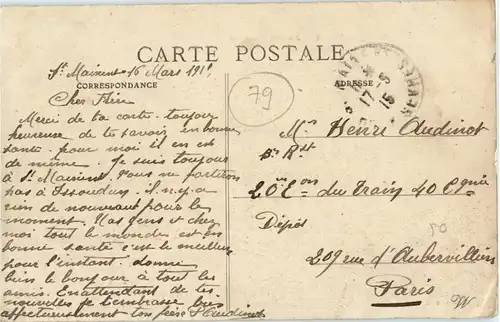 CARTE POSTALE
St Maixent 16 Mars 191
CORRESPONDANCE
ADRESSE
79
Cher Frère
Merci de ta carte. toujour
heureuse de te savoir en bonne
santé. pour moi il en est
de même. Je suis toujour
à St Maixent. nous ne partiron
pas à Issoudun. il.n.y.a
rien de nouveaux pour le
moment. Mas gens et chez
moi tout le monde est en
bonne santé c'est le meilleur
pour l'instant. donne
bien le bonjour à tout les
amis. En attendant de tes
nouvelles je t'embrasse bien
affectueusement ton frère Audinot
Mr Henri Audinot
20è Eon du Train 40 Cgnie
Dépôt
209 rue d'Aubervilliers
Paris
50